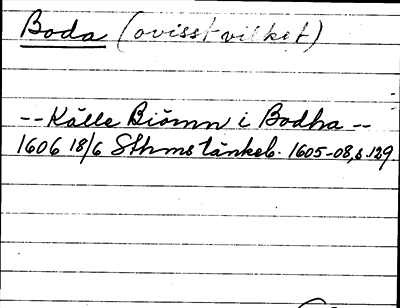 Boda (ovisst vilket)
-- Kålle Biörnn i Bodha --
1606 18/6 Sthms tänkeb. 1605-08, s. 129